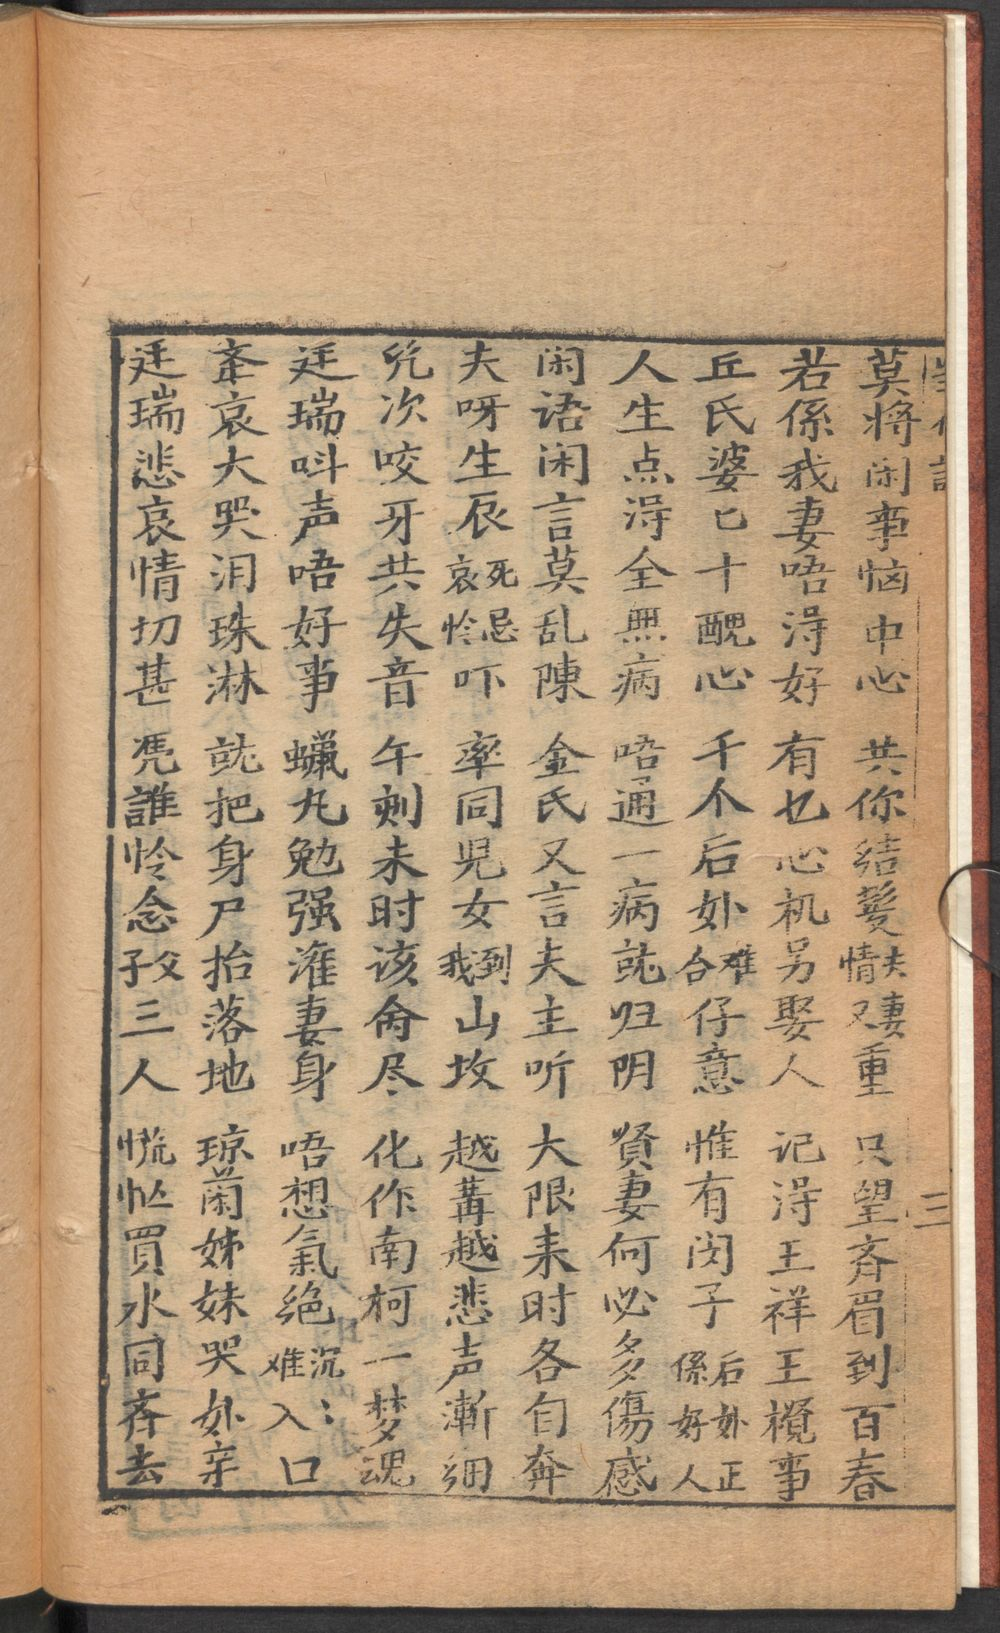 莫将闲事恼中心 共你结发夫妻情又重 只望斉眉到百春
若係我妻唔淂好 有乜心机另娶人 记淂王祥王榄事
丘氏婆乜十醜心 千个后妚难合仔意 惟有闵子后妚正係好人
人生点淂全無病 唔通一病就归阴 賢妻何必多傷感
闲语闲言莫乱陳 金氏又言夫主听 大限来时各自奔
夫呀生辰死忌哀怜吓 率同児女到我山坟 越講越悲声漸细
几次咬牙共失音 午刻未时该命尽 化作南柯一梦魂
廷瑞呌声唔好事 蠟丸勉强灌妻身 唔想氣绝沉:难入口
斊哀大哭泪珠淋 就把身尸抬落地 琼蘭姊妹哭妚亲
廷瑞悲哀情切甚 凭誰怜念父子三人 慌忙買水同斉去
三